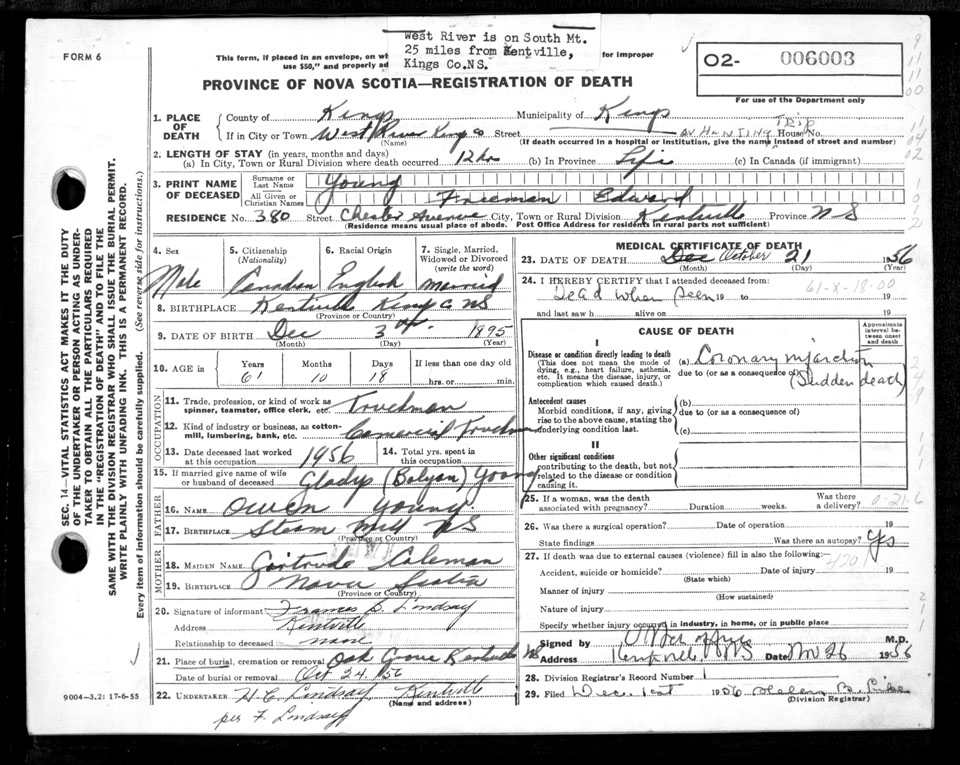 West River is on South Mt.
25 miles from Kentville,
Kings Co.NS.
FORM 6
This form, if placed in an envelope, on
for improper
use $50," and properly ad
O2- 006003
PROVINCE OF NOVA SCOTIA—REGISTRATION OF DEATH
For use of the Department only
1. PLACE OF DEATH
County of Kings Municipality of Kings
If in City or Town West River Kings Co Street ON HUNTING TRIP House No.
(Name) (If death occurred in a hospital or institution, give the name instead of street and number)
2. LENGTH OF STAY (in years, months and days)
(a) In City, Town or Rural Division where death occurred 12 hrs (b) In Province Life (c) In Canada (if immigrant)
3. PRINT NAME OF DECEASED
Surname or Last Name Young
All Given or Christian Names Freeman Edward
RESIDENCE No. 380 Street Chester Avenue City, Town or Rural Division Kentville Province N S
(Residence means usual place of abode. Post Office Address for residents in rural parts not sufficient)
SEC. 14—VITAL STATISTICS ACT MAKES IT THE DUTY
OF THE UNDERTAKER OR PERSON ACTING AS UNDER-
TAKER TO OBTAIN ALL THE PARTICULARS REQUIRED
IN THE "REGISTRATION OF DEATH" AND TO FILE THE
SAME WITH THE DIVISION REGISTRAR WHO SHALL ISSUE THE BURIAL PERMIT.
WRITE PLAINLY WITH UNFADING INK. THIS IS A PERMANENT RECORD.
Every item of information should be carefully supplied. (See reverse side for instructions.)
4. Sex
5. Citizenship (Nationality)
6. Racial Origin
7. Single, Married, Widowed or Divorced (write the word)
Male Canadian English Married
8. BIRTHPLACE Kentville Kings Co NS
(Province or Country)
9. DATE OF BIRTH Dec 3 1895
(Month) (Day) (Year)
10. AGE in Years Months Days If less than one day old
61 10 18 hrs. or min.
OCCUPATION
11. Trade, profession, or kind of work as spinner, teamster, office clerk, etc. Travelman
12. Kind of industry or business, as cotton-mill, lumbering, bank, etc.
13. Date deceased last worked at this occupation 1956
14. Total yrs. spent in this occupation
15. If married give name of wife or husband of deceased Gladys (Bolyan) Young
FATHER
16. NAME Owen Young
17. BIRTHPLACE Steam Mill NS
(Province or Country)
MOTHER
18. MAIDEN NAME Gertrude Coleman
19. BIRTHPLACE Nova Scotia
(Province or Country)
20. Signature of informant Frances S. Lindsay
Address Kentville
Relationship to deceased none
21. Place of burial, cremation or removal Oak Grove Kentville NS
Date of burial or removal Oct 24 /56
22. UNDERTAKER H C Lindsay Kentville
(Name and address)
per F. Lindsay
9004—3.2: 17-6-55
MEDICAL CERTIFICATE OF DEATH
23. DATE OF DEATH Dec October 21 1956
(Month) (Day) (Year)
24. I HEREBY CERTIFY that I attended deceased from:
Dead when seen 19 to 61-X-18-00 19
and last saw h alive on 19
CAUSE OF DEATH
Approximate interval between onset and death
I
Disease or condition directly leading to death
(This does not mean the mode of dying, e.g., heart failure, asthenia, etc. It means the disease, injury, or complication which caused death.)
(a) Coronary infarction
due to (or as a consequence of) (Sudden death)
Antecedent causes
Morbid conditions, if any, giving rise to the above cause, stating the underlying condition last.
(b)
due to (or as a consequence of)
(c)
II
Other significant conditions
contributing to the death, but not related to the disease or condition causing it.
25. If a woman, was the death associated with pregnancy? Duration weeks. Was there a delivery?
0-21-6
26. Was there a surgical operation? Date of operation 19
State findings Was there an autopsy? Yes
27. If death was due to external causes (violence) fill in also the following:—
4201
Accident, suicide or homicide? Date of injury 19
(State which)
Manner of injury
(How sustained)
Nature of injury
Specify whether injury occurred in industry, in home, or in public place
Signed by M.D.
Address NS Date Nov 26 1956
28. Division Registrar's Record Number 1
29. Filed Dec. 1st 1956 Helen B.
(Division Registrar)